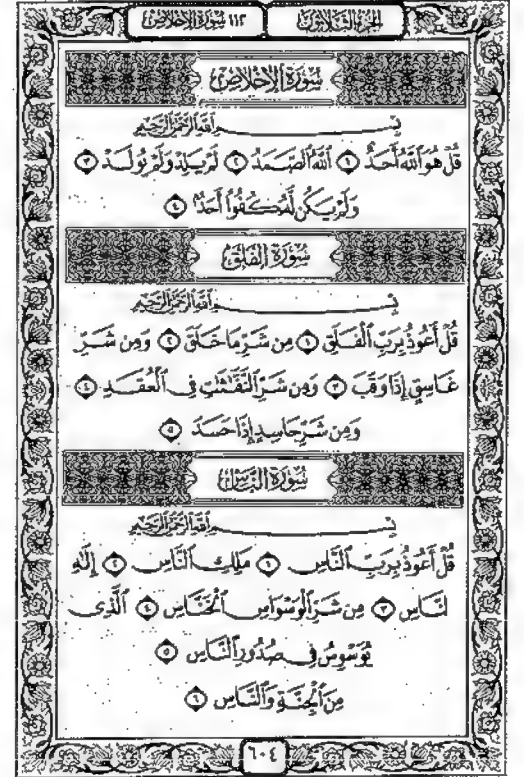 الجزء الثلاثون ١١٢ سورة الإخلاص
سُورَةُ الإِخْلَاصِ
بِسْمِ اللَّهِ الرَّحْمَٰنِ الرَّحِيمِ
قُلْ هُوَ ٱللَّهُ أَحَدٌ ١ ٱللَّهُ ٱلصَّمَدُ ٢ لَمْ يَلِدْ وَلَمْ يُولَدْ ٣
وَلَمْ يَكُن لَّهُۥ كُفُوًا أَحَدٌ ٤
سُورَةُ الْفَلَقِ
بِسْمِ اللَّهِ الرَّحْمَٰنِ الرَّحِيمِ
قُلْ أَعُوذُ بِرَبِّ ٱلْفَلَقِ ١ مِن شَرِّ مَا خَلَقَ ٢ وَمِن شَرِّ
غَاسِقٍ إِذَا وَقَبَ ٣ وَمِن شَرِّ ٱلنَّفَّٰثَٰتِ فِى ٱلْعُقَدِ ٤
وَمِن شَرِّ حَاسِدٍ إِذَا حَسَدَ ٥
سُورَةُ النَّاسِ
بِسْمِ اللَّهِ الرَّحْمَٰنِ الرَّحِيمِ
قُلْ أَعُوذُ بِرَبِّ ٱلنَّاسِ ١ مَلِكِ ٱلنَّاسِ ٢ إِلَٰهِ
ٱلنَّاسِ ٣ مِن شَرِّ ٱلْوَسْوَاسِ ٱلْخَنَّاسِ ٤ ٱلَّذِى
يُوَسْوِسُ فِى صُدُورِ ٱلنَّاسِ ٥
مِنَ ٱلْجِنَّةِ وَٱلنَّاسِ ٦
٦٠٤